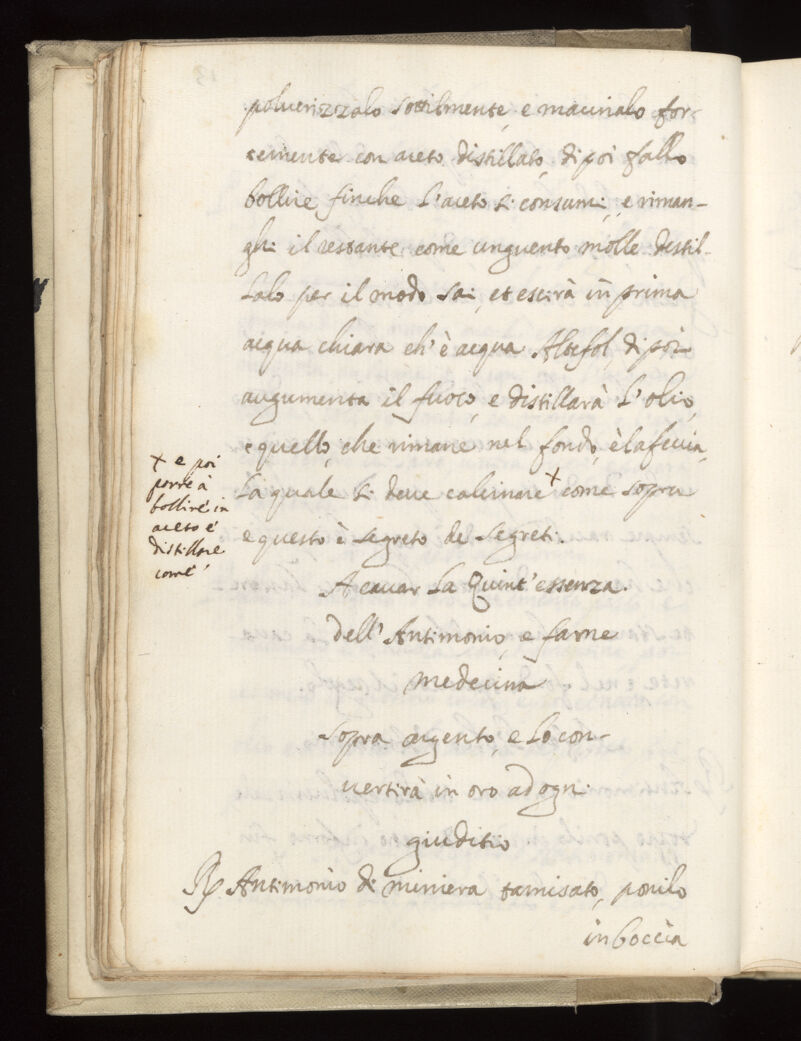 polverizzalo sottilmente, e macinalo for-
temente con aceto distillato, di poi fallo
bollire finche l'aceto si consumi, e riman-
ghi il restante come unguento molle distil-
lalo per il modo sai, et escirà in prima
acqua chiara ch'è acqua Altefol, di poi
augumenta il fuoco, e distillarà l'olio,
e quello, che rimane nel fondo, è la feccia,
la quale si deve calcinare + come sopra
e questo è segreto de segreti.
+ e poi
porre à
bollire in
aceto e
distillare
come
A cavar la Quint'essenza.
dell'Antimonio, e farne
medecina
sopra argento, e lo con-
vertirà in oro ad ogni
giuditio
℞ Antimonio di miniera tamisato, ponilo
in boccia